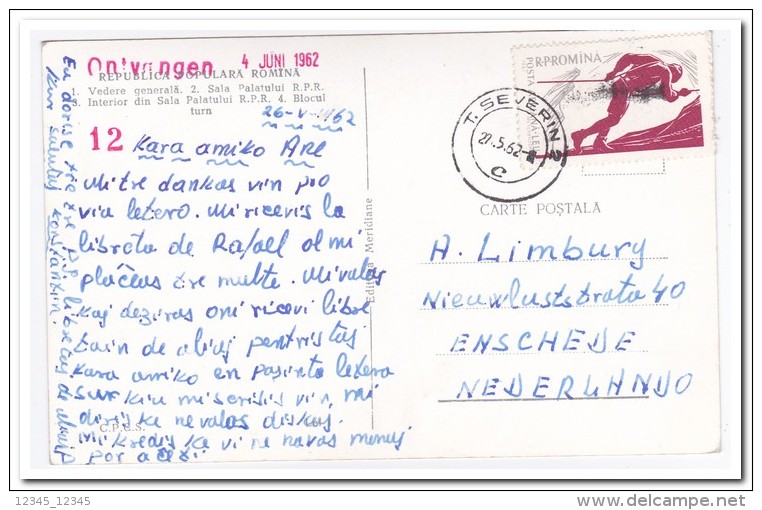 Ontvangen 4 JUNI 1962
REPUBLICA POPULARA ROMINĂ
1. Vedere generală. 2. Sala Palatului R.P.R.
3. Interior din Sala Palatului R.P.R. 4. Blocul
turn
26-V-1962
12 Kara amiko Are
Mi tre dankas vin pro
via letero. Mi ricevis la
libreto de Rafael ol mi
plăceas tre multe. Mi valas
kaj deziras oni ricevi libre
tain de aliaj pentristaj
Kara amiko en pasinta letero
sur kiu mi scribis vin, mi
diris ke ne valas diskoj.
Mi kredis ke vi ne havas monuj
por aĉeti
C.P.C.S.
kun salutoj Konstantin.
Editura Meridiane
R.P.ROMÎNA
POSTA
T. SEVERIN 2
27.5.62
C
CARTE POȘTALĂ
A. Limbury
Nieuwluststrata 40
ENSCHEDE
NEDERLANDO
12345_12345
delcampe.net